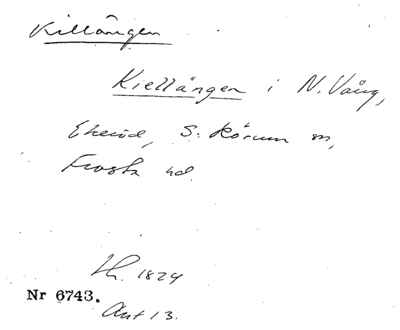 Killängen
Kiellängen i N. Vång,
Ekeröd, S. Rörum sn,
Frosta hd.
Lh. 1824
Nr 6743.
Akt 13.